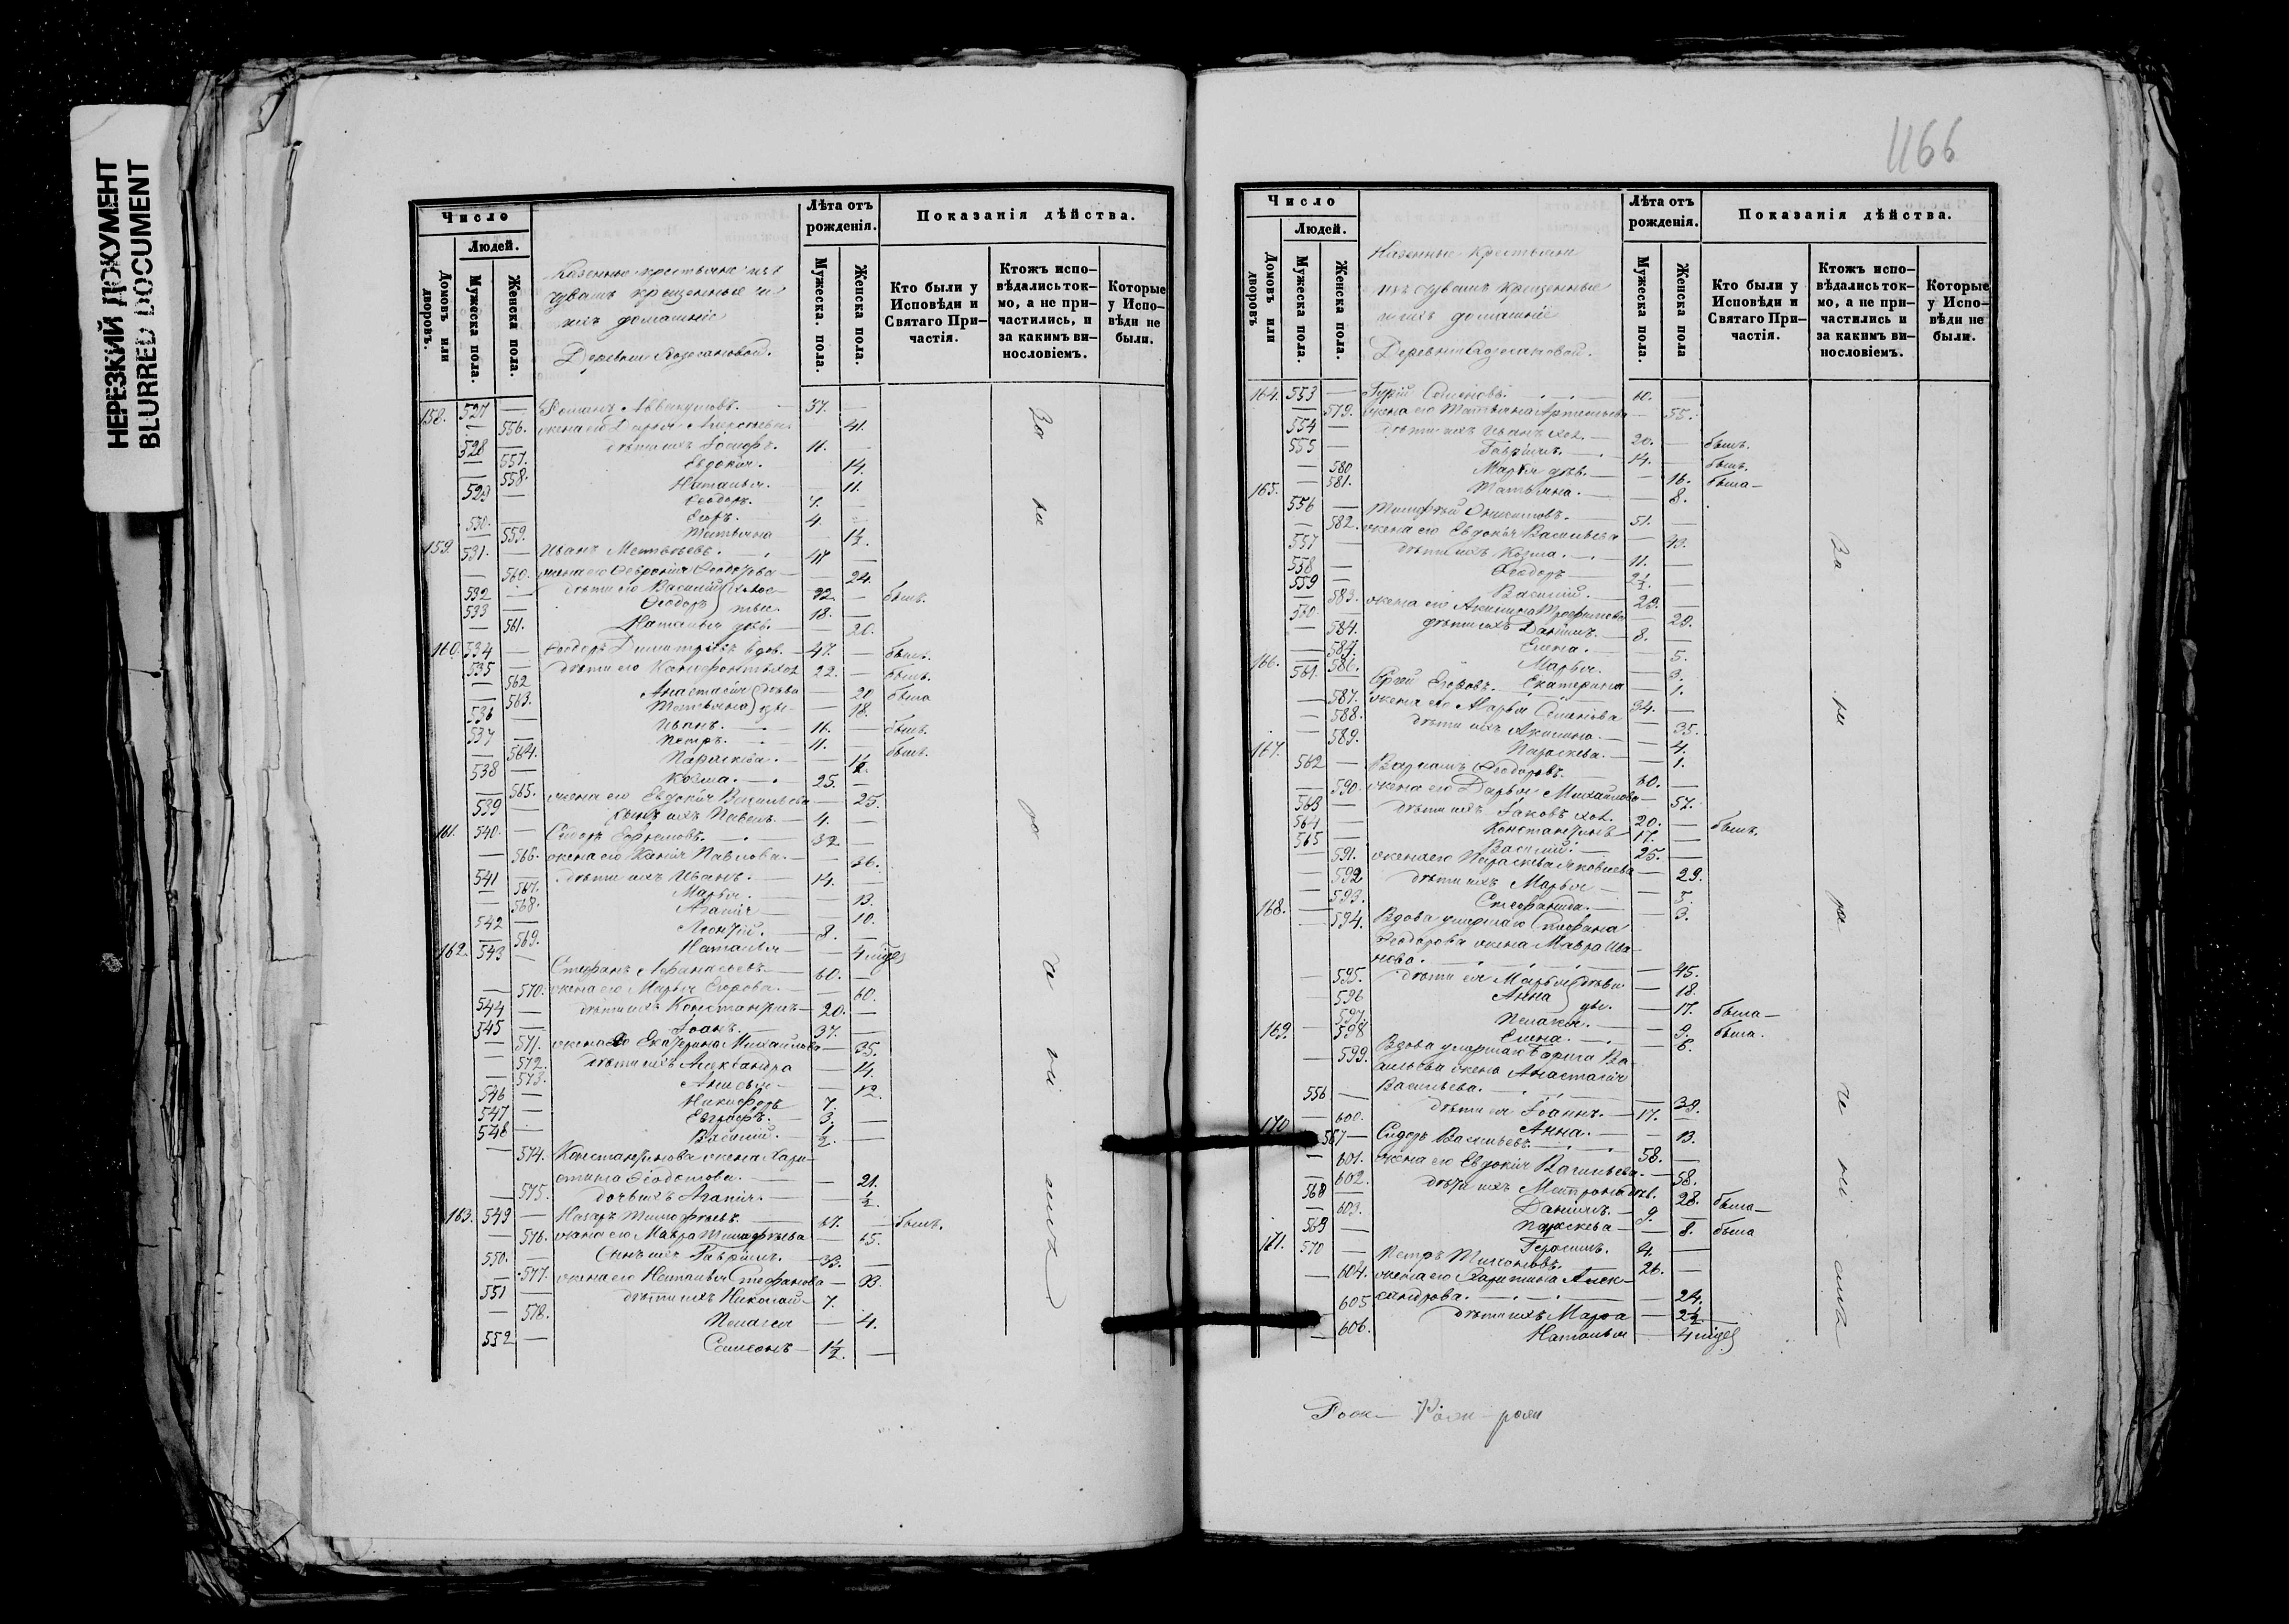 НЕРЕЗКИЙ ДОКУМЕНТ
BLURRED DOCUMENT
Число
Людей.
Домовъ или дворовъ.
Мужеска пола.
Женска пола.
Казенные крестьяне изъ
чувашъ крещенные и
ихъ домашніе
Деревни
Лѣта отъ рожденія.
Мужеска. пола.
Женска пола.
Показанія дѣйства.
Кто были у Исповѣди и Святаго При-частія.
Ктожъ испо-вѣдались ток-мо, а не при-частились, и за какимъ ви-нословіемъ.
Которые у Испо-вѣди не были.
158. 527 — Романъ Аввакумовъ. 57. —
— 556. жена его Дарья — 41.
528 — дѣти ихъ Іосифъ. 16. —
— 557. Евдокія. — 14.
— 558. Наталья. — 11.
529 — Ѳеодоръ. 7. —
530. — Егоръ. 4. —
— 559. Татьяна — 1½
159. 531. — Иванъ Матвѣевъ. 47 —
— 560. жена его Ѳевронія Ѳеодорова — 24.
532 — дѣти его Василій холос- 22. — былъ.
533 — Ѳеодоръ тые. 18. —
— 561. Наталья дѣв. — 20.
160. 534 — Ѳеодоръ Димитріевъ вдов. 47. — былъ.
535 — дѣти его Ксенофонтъ хол. 22. — былъ.
— 562 Анастасія дѣви — 20 была
— 563. Татьяна цы. — 18.
536 — Иванъ. 16. — былъ.
537 — Петръ. 11. — былъ.
— 564. Параскева. — 1½.
538 — Козма. 25. —
— 565. жена его Евдокія Васильева — 25.
539 — сынъ ихъ Павелъ. 4. —
161. 540. — Сидоръ Ефремовъ. 32. —
— 566. жена его Ксенія Павлова. — 36.
541 — дѣти ихъ Иванъ. 14. —
— 567. Марья. — 13.
— 568. Агапія — 10.
542 — Леонтій. 8. —
— 569. Наталья — 4 нідел
162. 543 — Стефанъ Афанасьевъ. 60. —
— 570. жена его Марья Егорова. — 60.
544 — дѣти ихъ Константинъ — 20. —
545 — Іоанъ. 37. —
— 571. жена его Екатерина Михайлова — 35.
— 572. дѣти ихъ Александра — 14.
— 573. Анисья — 12.
546 — Никифоръ 7. —
547 — Евграфъ. 3. —
548 — Василій. ½. —
— 574. Константинова жена Хари-
стина Ѳеодотова. — 21.
— 575. дочь ихъ Агапія. — ½.
163. 549 — Назаръ Тимофѣевъ. 67. — былъ.
— 576. жена его Мавра Тимофѣева — 65.
550. — Сынъ ихъ Гавріилъ. — 33. —
— 577. жена его Наталья Стефанова — 33.
551 — дѣти ихъ Николай — 7.
— 578. Пелагея — 4.
552 — Самсонъ — 1½. —
За
ни
ра
че
ні
емъ
1166
Число
Людей.
Домовъ или дворовъ
Мужеска пола.
Женска пола.
Казенные крестьяне
изъ чувашъ крещенные
и ихъ домашніе
Деревни
Лѣта отъ рожденія.
Мужеска пола.
Женска пола
Показанія дѣйства.
Кто были у Исповѣди и Святаго При-частія.
Ктожъ испо-вѣдались ток-мо, а не при-частились и за какимъ ви-нословіемъ.
Которые у Испо-вѣди не были.
164. 553 — Гурій Семеновъ. 60. —
— 579. жена его Татьяна Артемьева — 55.
554 — дѣти ихъ Иванъ хол. — 20. — былъ.
555 — Гавріилъ. — 14. — былъ.
— 580 Марья дѣв. — 16. была —
— 581. Татьяна. — 8.
165. 556 — Тимофей Онисимовъ. 51. —
— 582. жена его Евдокія Васильева — 43.
557 — дѣти ихъ Козма. 11. —
558 — Ѳеодоръ 2½. —
559 — Василій. 23. —
— 583. жена его Акилина Трофимова — 23.
560 — дѣти ихъ Даніилъ. — 8. —
— 584. Елена. — 5.
— Марья. — 3.
— 586. Екатерина — 1.
166. 561. Егоровъ. 34. —
— 587. жена его Марья Семенова — 35.
— 588. дѣти ихъ Акилина. — 4.
— 589. Параскева. — 1.
167. 562 — Варламъ Ѳеодоровъ. 60. —
— 590. жена его Дарья Михайлова — 57.
563 — дѣти ихъ Іаковъ хол. 20. — былъ.
564 — Константинъ 17. —
565 — Василій. 25. —
— 591. жена его Параскева Яковлева — 29.
— 592 дѣти ихъ Марья — 5.
— 593. Стефанида. — 3.
168. — 594. Вдова умершаго Стефана
Ѳеодорова жена Мавра Ива-
нова. — 45.
— 595. дѣти ея Марья дѣви — 18.
— 596 Анна цы. — 17. была —
— 597. Пелагея. — 9. была.
— 598 Елена. — 6.
169. — 599. Вдова умершаго Ва-
сильева жена Анастасія
Васильева. — 38.
556 — дѣти ея Іоаннъ. — 17. —
— 600. Анна. — 13.
170 567 — Сидоръ Васильевъ. 58. —
— 601. жена его Евдокія Васильева. — 58.
— 602. дѣти ихъ Матрона дѣв. 28. была —
568 — Даніилъ. — 9. —
— 603. Параскева — 8. была
569 — Герасимъ. 4. —
171. 570 — Петръ Тихоновъ. 26. —
— 604. жена его Харитина Алек-
сандрова. — 24.
605 дѣти ихъ Марѳа — 2½.
— 606. Наталья — 4 нідел
За
ни
ра
че
ні
емъ